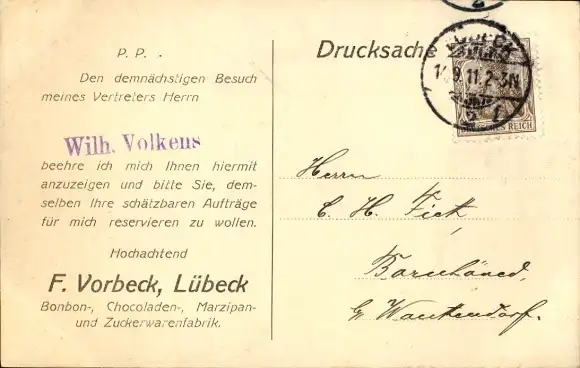 P. P.
Den demnächstigen Besuch
meines Vertreters Herrn
Wilh. Volkens
beehre ich mich Ihnen hiermit
anzuzeigen und bitte Sie, dem-
selben Ihre schätzbaren Aufträge
für mich reservieren zu wollen.
Hochachtend
F. Vorbeck, Lübeck
Bonbon-, Chocoladen-, Marzipan-
und Zuckerwarenfabrik.
Drucksache
LÜBECK
9.11. 2-3N
DEUTSCHES REICH
Herrn
C. H. Fick,
Wankendorf.